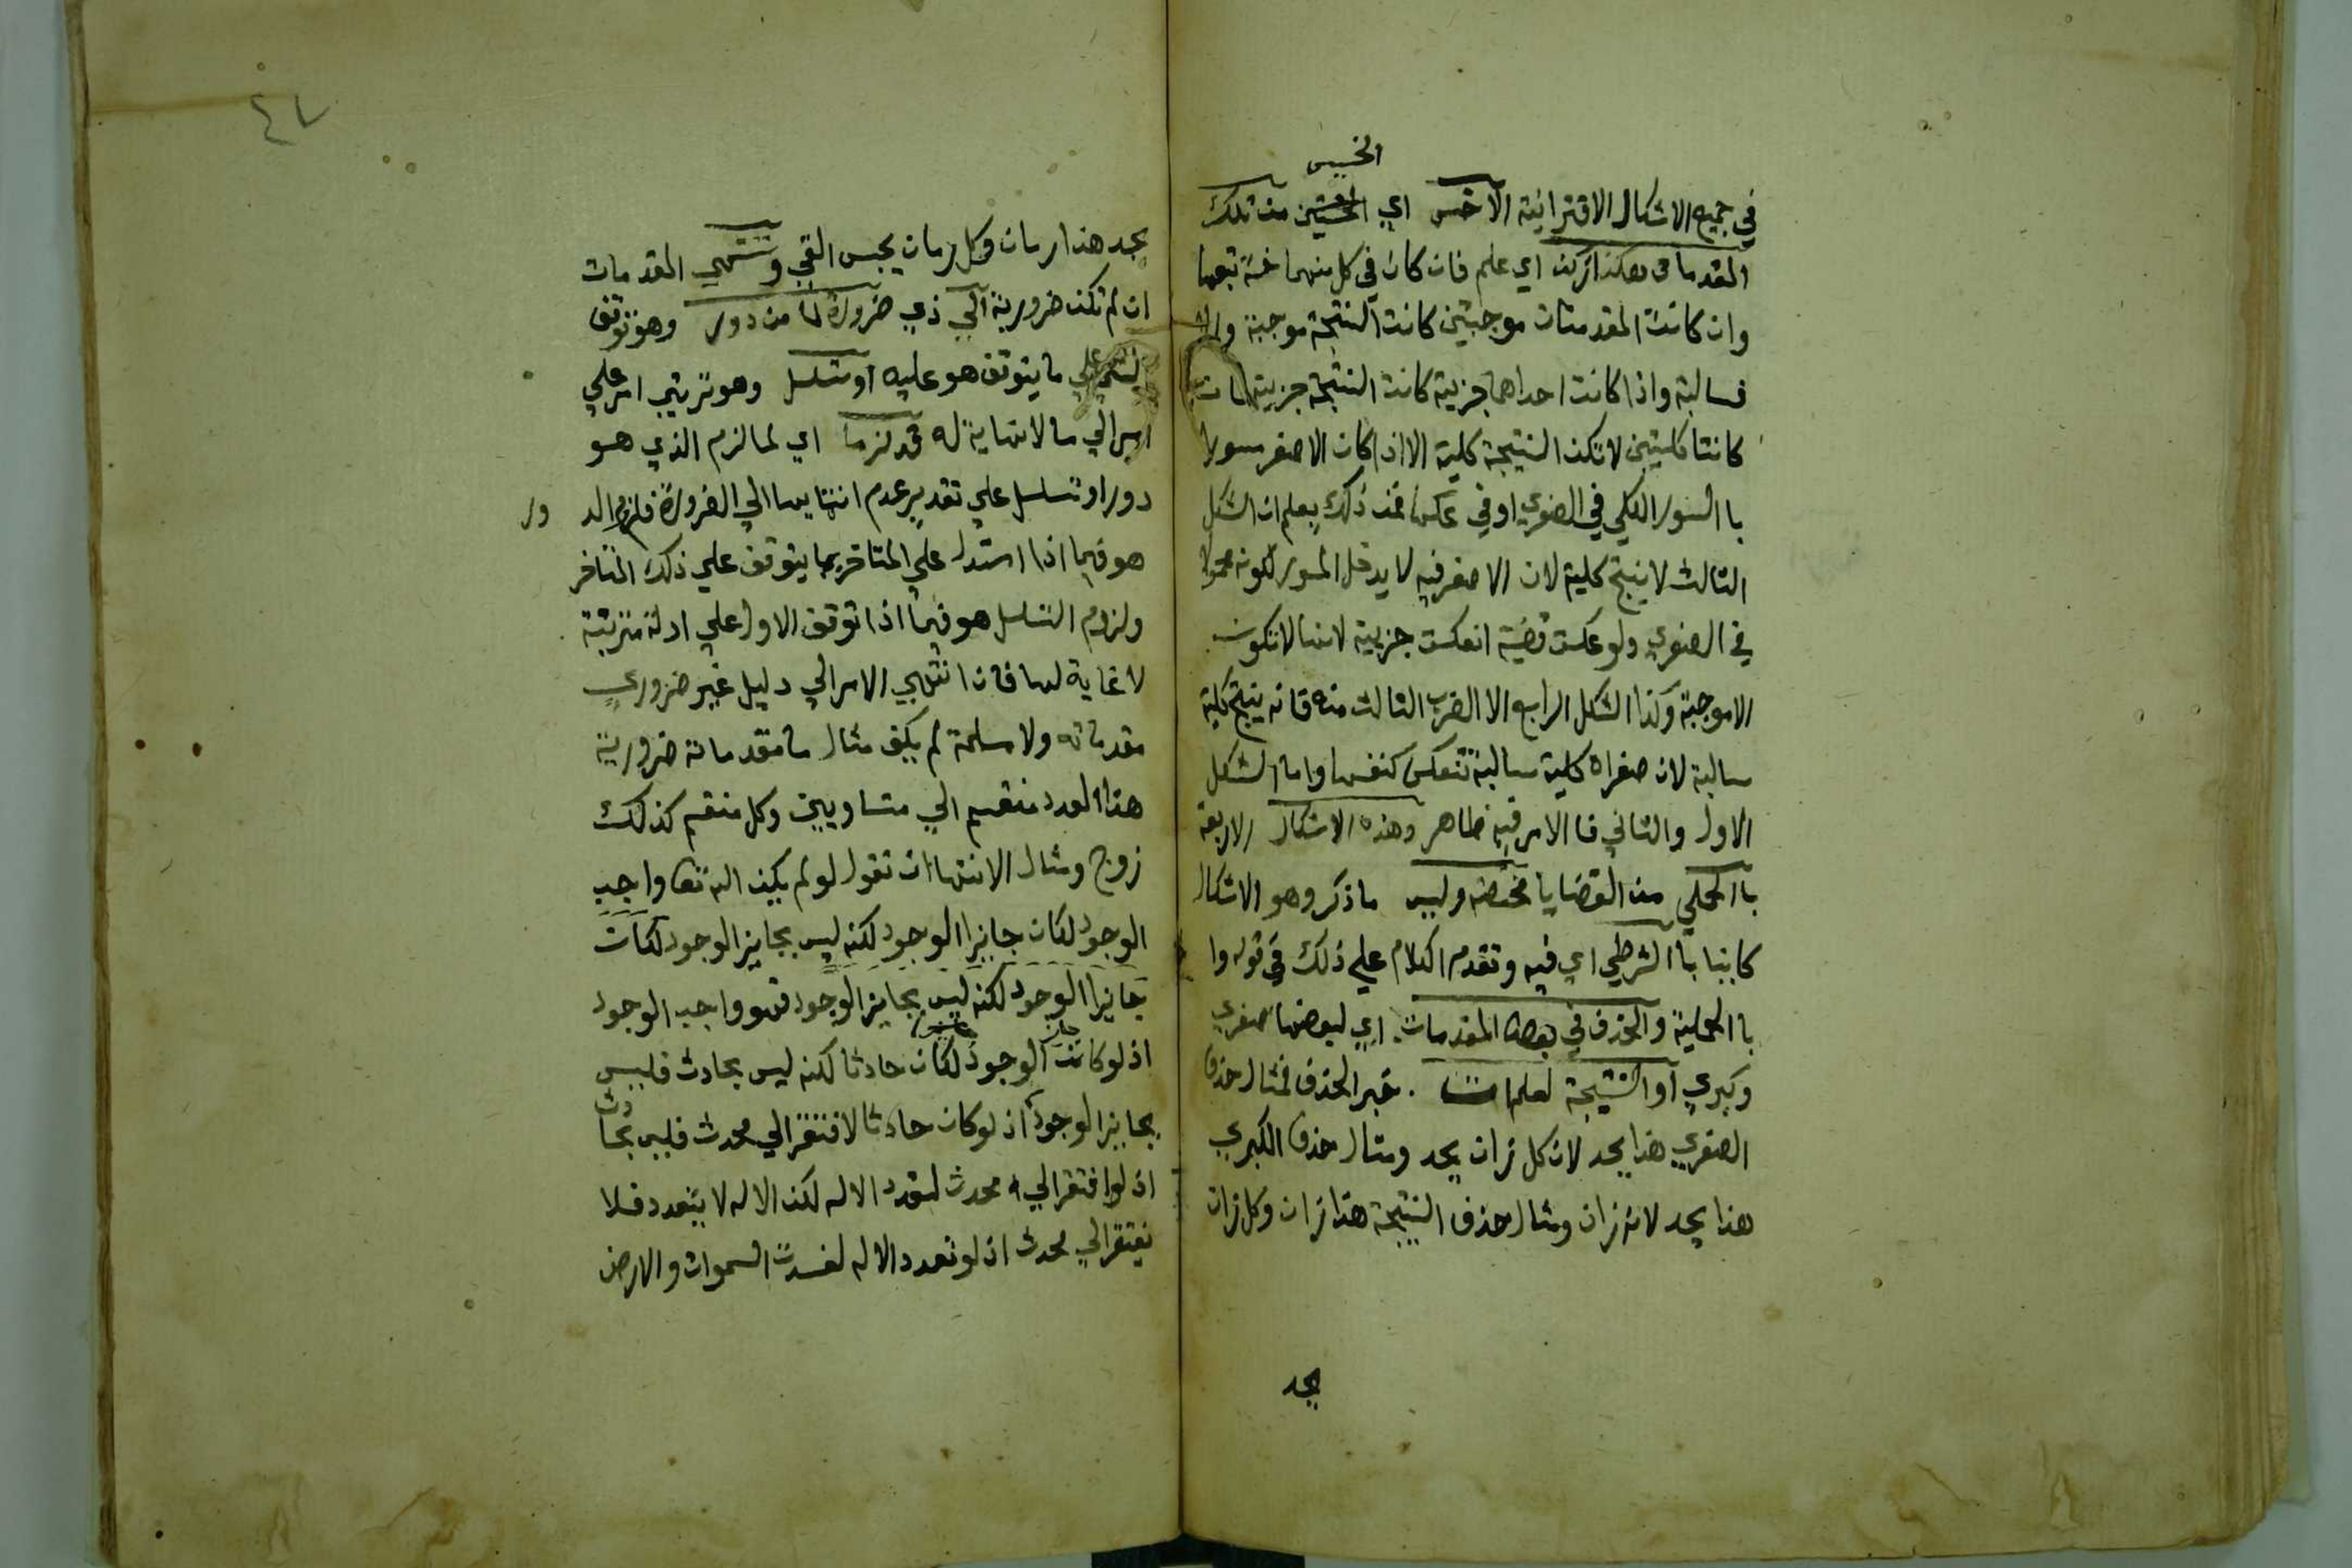 الخسيس
في جميع الاشكال الاقترانية الاخس اي من تلك
المقدمات هكذا زكن اي علم فان كان في كل منهما خسة تبعها
وان كانت المقدمتان موجبتين كانت النتيجة موجبة والا
فسالبة واذا كانت احداهما جزيية كانت النتيجة جزيية
كانتا كليتين لا تكن النتيجة كلية الا اذا كان الاصغر مسورا
با السور الكلي في الصغري او في عكسها فمن ذلك يعلم ان الشكل
الثالث لا ينتج كلية لان الاصغر فيه لا يدخل السور لكونه محمولا
في الصغري ولو عكست قضية انعكست جزيية لانها لا تكون
الا موجبة وكذا الشكل الرابع الا الضرب الثالث منه فانه ينتج كلية
سالبة لان صغراه كلية سالبة تنعكس كنفسها واما الشكل
الاول والثاني فا الامر فيه ظاهر وهذه الاشكال الاربعة
با الحملي من القضايا مختصة وليس ما ذكر وهو الاشكال
كاينا با الشرطي اي فيه وتقدم الكلام علي ذلك في قوله وا
با الحملية والحذف في بعض المقدمات اي لبعضها صغري
وكبري او النتيجة لعلم ات خبر الحذف فمثال حذف
الصغري هذا يحد لان كل زان يحد ومثال حذف الكبري
هذا يحد لانه زان ومثال حذف النتيجة هذا زان وكل زان
يحد
٤٧
يحد هذا رمان وكل رمان يحبس القي وتنتهي المقدمات
ان لم تكن ضرورية الي ذي ضرورة لما من دور وهو توقف
الشي علي ما يتوقف هو عليه او تسلسل وهو ترتيب امر علي
امر الي ما لا نهاية له قد لزما اي لما لزم الذي هو
دور او تسلسل علي تقدير عدم انتهايها الي الضرورة فلزوم الدور
هو فيما اذا استدل علي المتاخر بما يتوقف علي ذلك المتاخر
ولزوم التسلسل هو فيما اذا توقف الاول علي ادلة مترتبة
لا غاية لها فان انتهي الامر الي دليل غير ضروري
مقدماته ولا مسلمة لم يكف مثال ما مقدماته ضرورية
هذا العدد منقسم الي متساويين وكل منقسم كذلك
زوج ومثال الانتها ان تقول لو لم يكن اله تعا واجب
الوجود لكان جايزا الوجود لكنه ليس بجايز الوجود لكان
جايزا الوجود لكنه ليس بجايز الوجود فهو واجب الوجود
جايز
اذ لو كان الوجود لكان حادثا لكنه ليس بحادث فليس
بجايز الوجود اذ لو كان حادثا لافتقر الي محدث فليس بحادث
اذ لو افتقر الي محدث لتعدد الاله لكن الاله لا يتعدد فلا
يفتقر الي محدث اذ لو تعدد الاله لفسدت السموات والارض